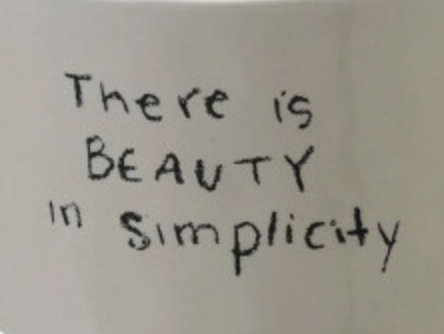 There is
BEAUTY
in simplicity